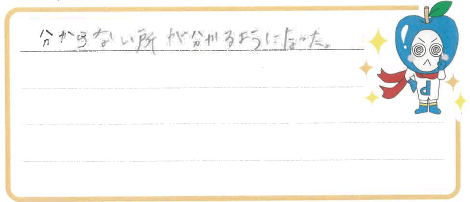 分からない所が分かるようになった。
d